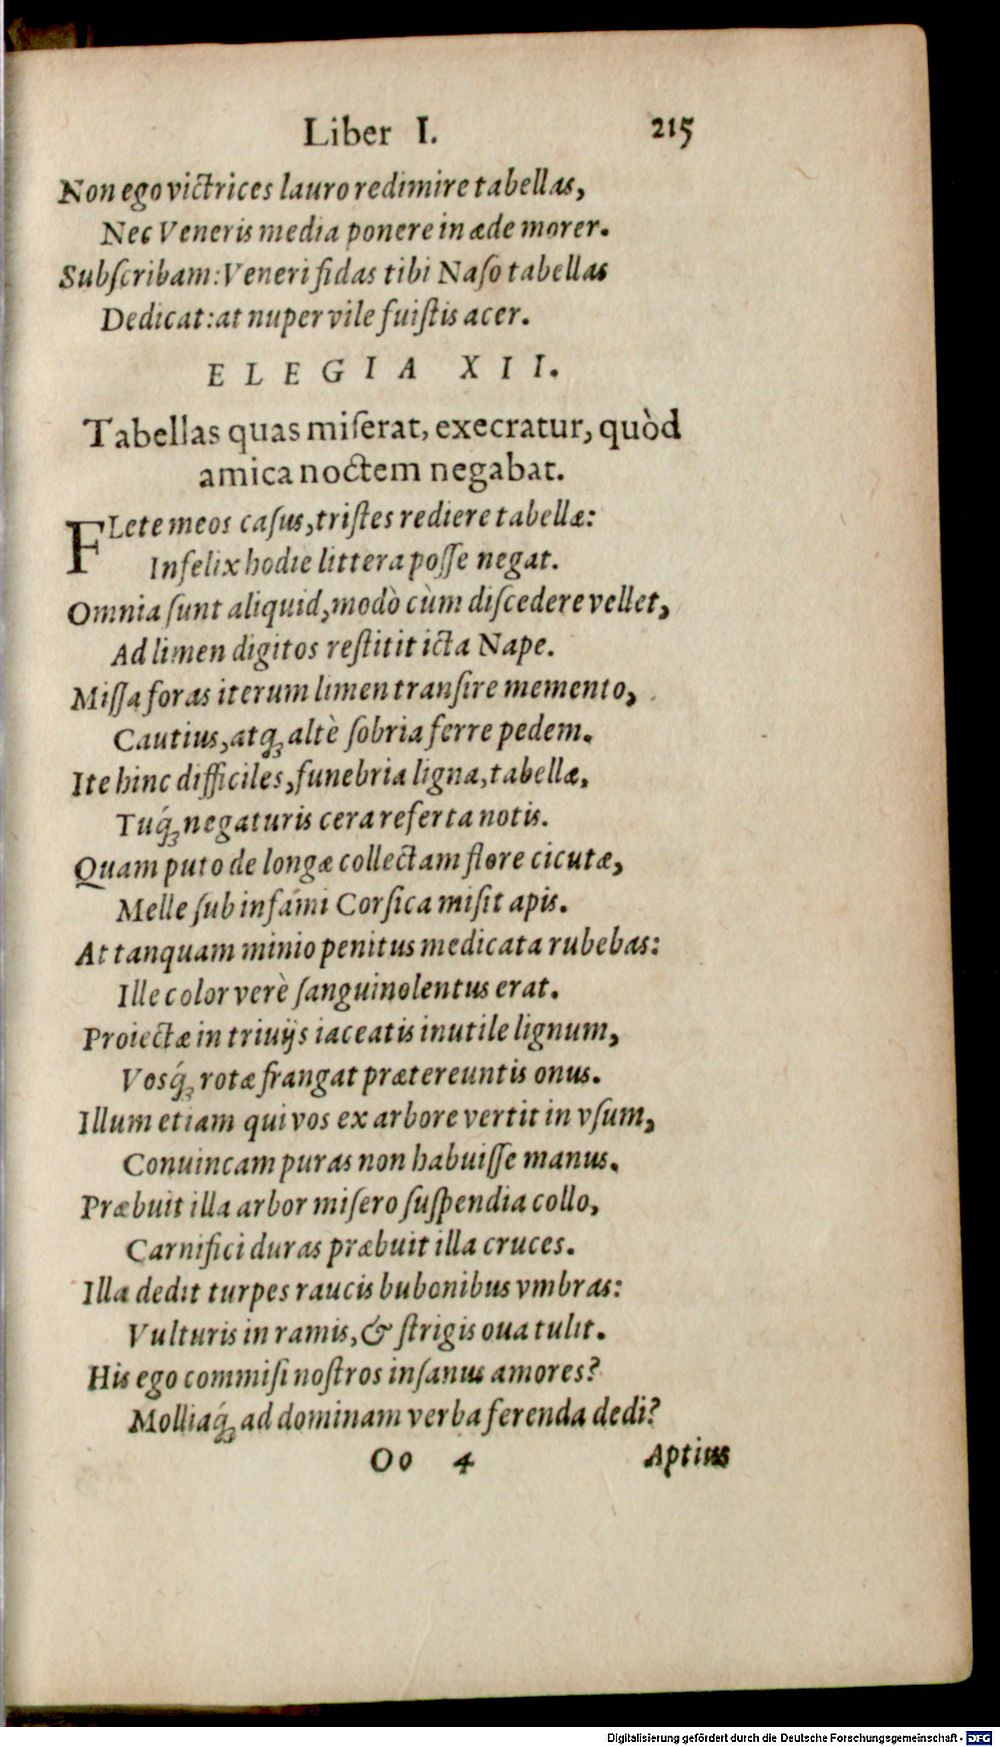 Liber I. 215
Non ego victrices lauro redimire tabellas,
Nec Veneris media ponere in æde morer.
Subſcribam: Veneri fidas tibi Naſo tabellas
Dedicat: at nuper vile fuiſtis acer.
ELEGIA XII.
Tabellas quas miſerat, execratur, quòd
amica noctem negabat.
FLete meos caſus, triſtes rediere tabellæ:
Infelix hodie littera poſſe negat.
Omnia ſunt aliquid, modò cùm diſcedere vellet,
Ad limen digitos reſtitit icta Nape.
Miſſa foras iterum limen tranſire memento,
Cautius, atq; altè ſobria ferre pedem.
Ite hinc difficiles, funebria ligna, tabellæ,
Tuq́; negaturis cera referta notis.
Quam puto de longæ collectam flore cicutæ,
Melle ſub infami Corſica miſit apis.
At tanquam minio penitus medicata rubebas:
Ille color verè ſanguinolentus erat.
Proiectæ in triuijs iaceatis inutile lignum,
Vosq́; rotæ frangat prætereuntis onus.
Illum etiam qui vos ex arbore vertit in vſum,
Conuincam puras non habuiſſe manus.
Præbuit illa arbor miſero ſuſpendia collo,
Carnifici duras præbuit illa cruces.
Illa dedit turpes raucis bubonibus vmbras:
Vulturis in ramis, & ſtrigis oua tulit.
His ego commiſi noſtros inſanus amores?
Molliaq́; ad dominam verba ferenda dedi?
Oo 4 Aptius
Digitalisierung gefördert durch die Deutsche Forschungsgemeinschaft - DFG